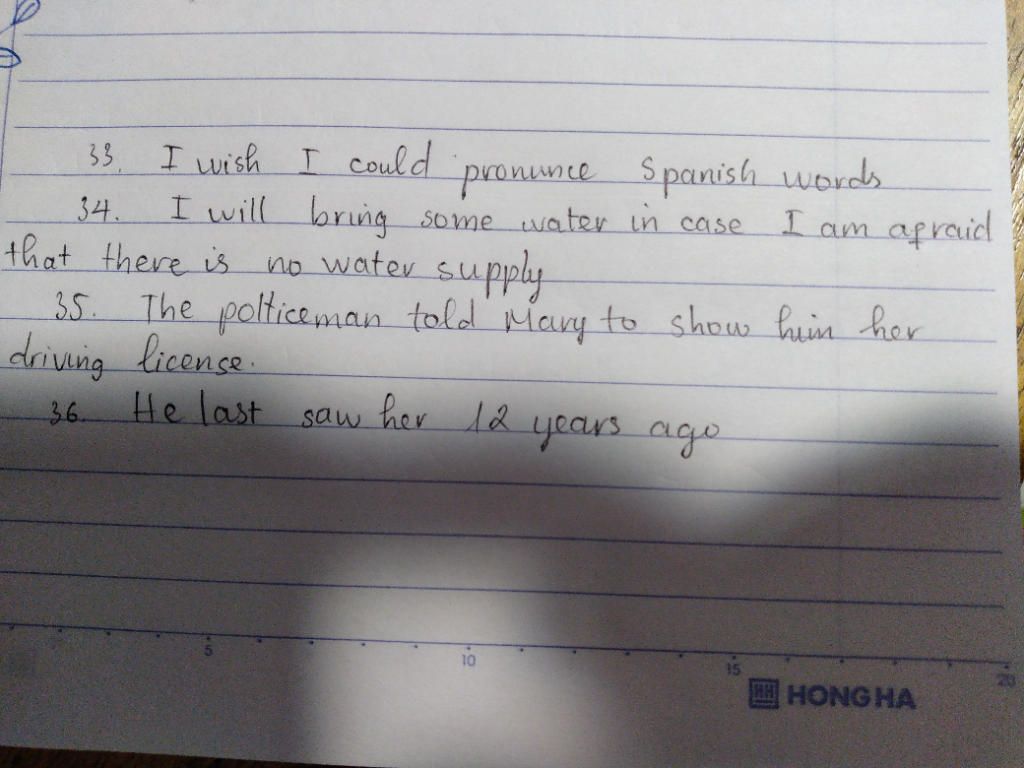 33. I wish I could pronunce Spanish words
34. I will bring some water in case I am afraid
that there is no water supply
35. The polticeman told Mary to show him her
driving license.
36. He last saw her 12 years ago
5 10 15 20
HH HONG HA